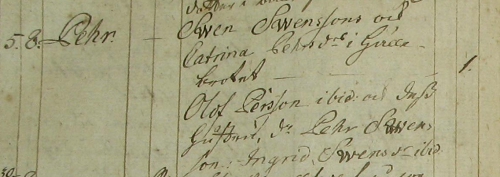 5. 8. Pehr — Swen Swenssons och
Catrina Pehrsdr i
kroket — 1.
Olof Persson ibid: och dess
Hustru, dr. Pehr Swens
son; Ingrid Swensdr ibid